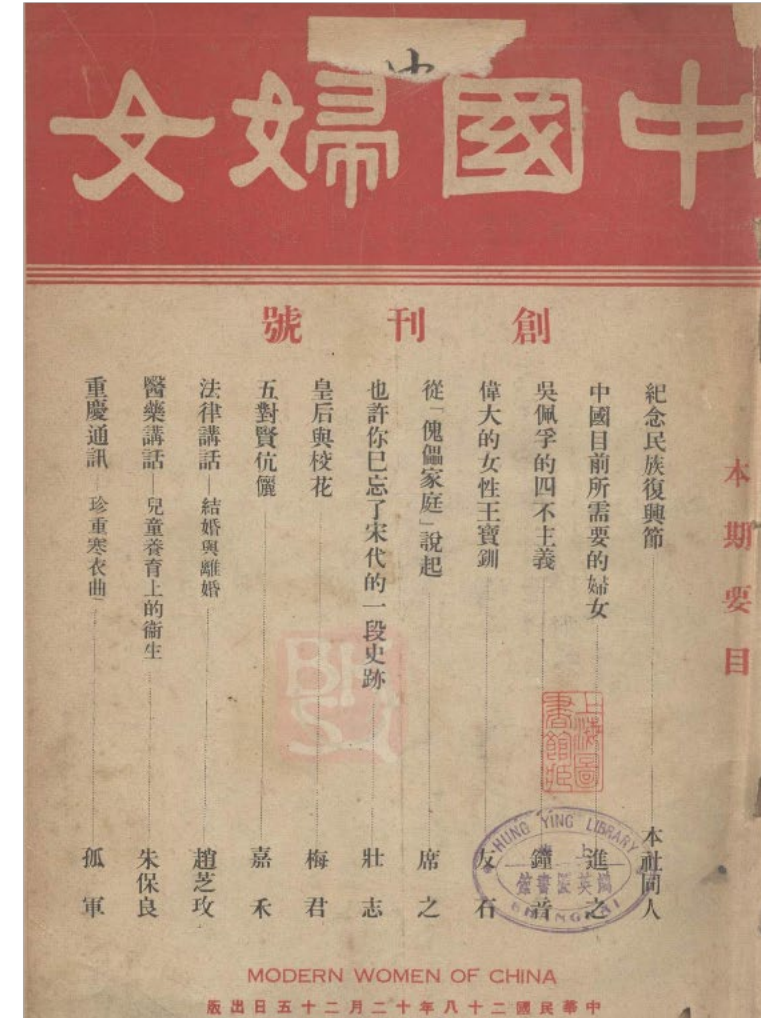 中國婦女
創刊號
本期要目
紀念民族復興節 本社同人
中國目前所需要的婦女 進之
吳佩孚的四不主義 鐘音
偉大的女性王寶釧 友石
從「傀儡家庭」說起 席之
也許你已忘了宋代的一段史跡 壯志
皇后與校花 梅君
五對賢伉儷 嘉禾
法律講話—結婚與離婚 趙芝玫
醫藥講話—兒童養育上的衞生 朱保良
重慶通訊—珍重寒衣曲 孤軍
上海圖書館藏
HUNG YING LIBRARY
上海
鴻英圖書館
SHANGHAI
MODERN WOMEN OF CHINA
中華民國二十八年十二月二十五日出版